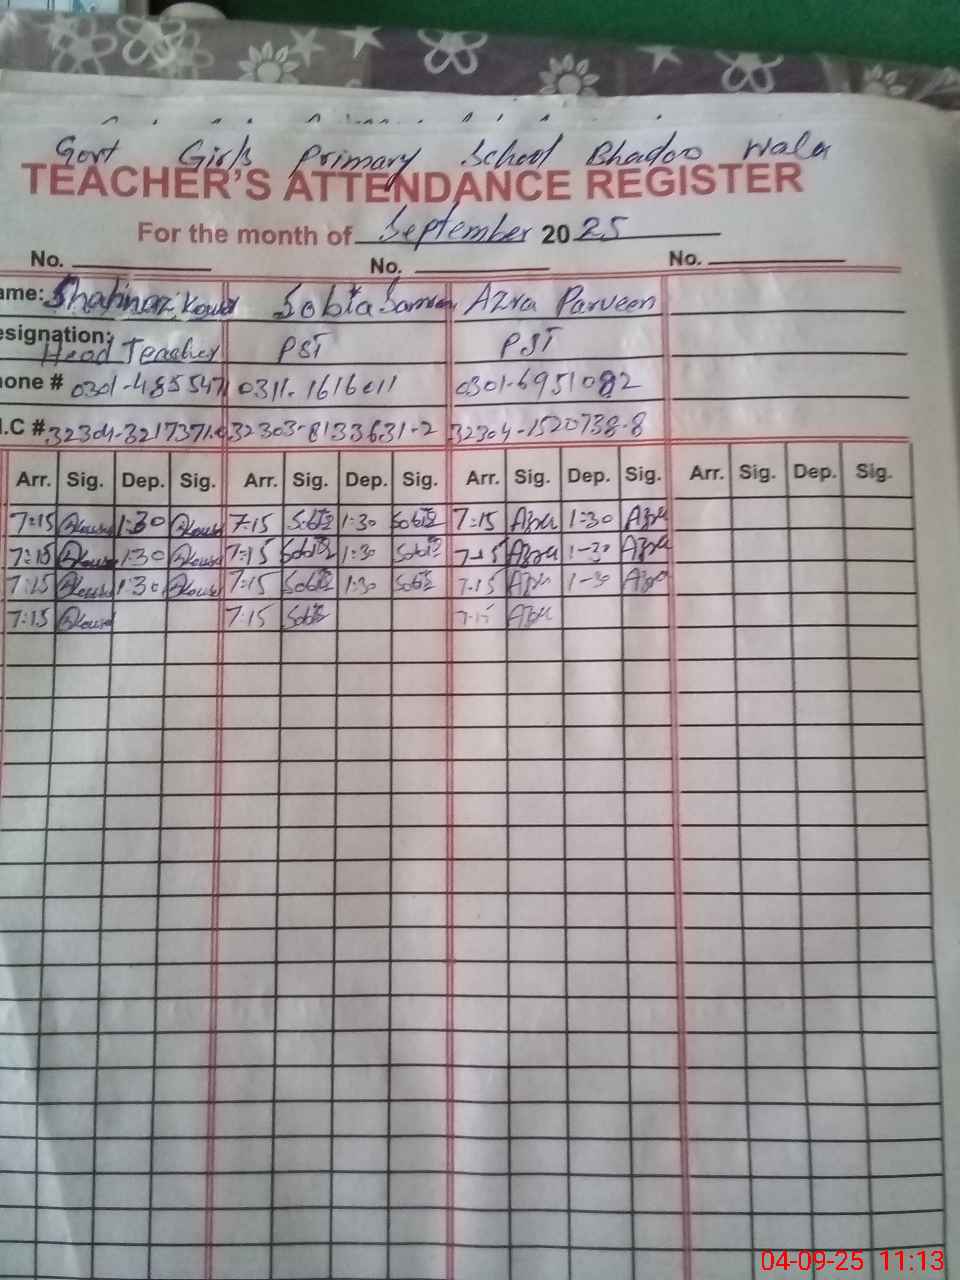 Govt Girls Primary School Bhadoo Wala
TEACHER'S ATTENDANCE REGISTER
For the month of September 2025
No. No. No.
ame: Shahnaz Kowsr Sobia Samreen Azra Parveen
esignation: Head Teacher PST PST
one # 0301-4855471 0311-1616011 0301-6951082
.C # 32304-3217371- 32303-8133631-2 32304-1520738-8
Arr. Sig. Dep. Sig. Arr. Sig. Dep. Sig. Arr. Sig. Dep. Sig. Arr. Sig. Dep. Sig.
7:15 1:30 7:15 Sobia 1:30 Sobia 7:15 Azra 1:30 Azra
7:15 1:30 7:15 Sobia 1:30 Sobia 7:15 Azra 1-30 Azra
7:15 1:30 7:15 Sobia 1:30 Sobia 7:15 Azra 1-30 Azra
7:15 7:15 Sobia 7:15 Azra
04-09-25 11:13